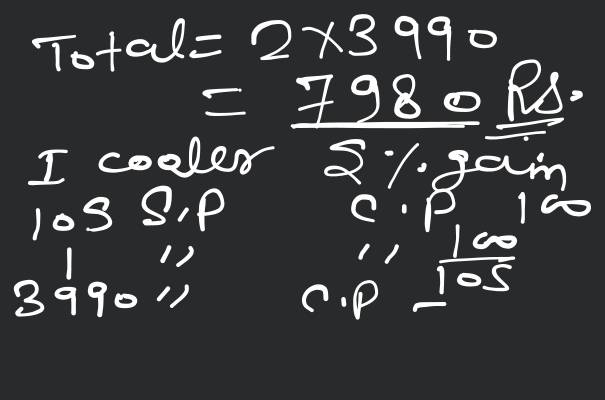 Total = 2×3990
= 7980 Rs.
I cooler 5% gain
105 S.P C.P 100
1 " " 100/105
3990 " C.P –